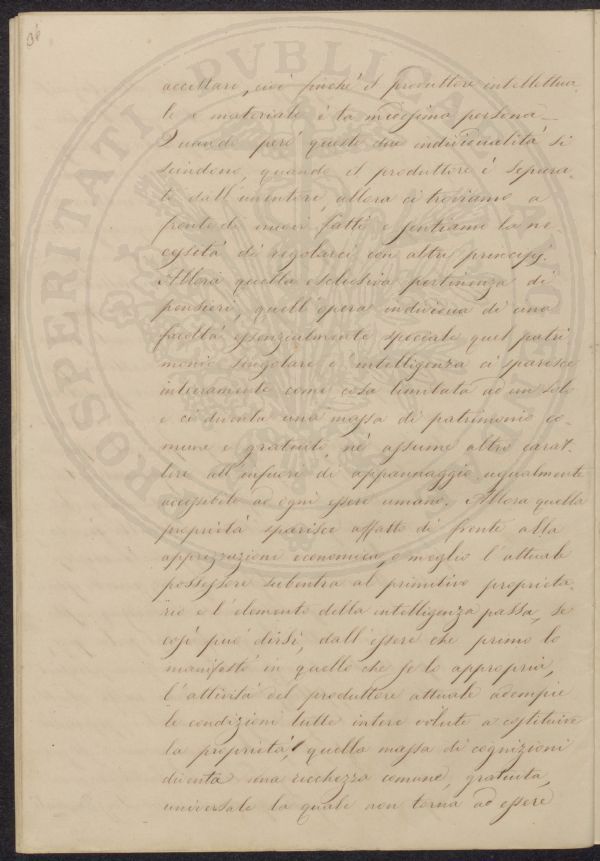 36
accettare, cioè finchè il produttore intellettua-
le e materiale è la medesima persona —
Quando però queste due individualità si
scindono, quando il produttore è separa-
to dall'inventore, allora ci troviamo a
fronte di nuovi fatti e sentiamo la ne-
cessità di regolarci con altri principj.
Allora quella esclusiva pertinenza di
pensieri, quell'opera individua di una
facoltà essenzialmente speciale quel patri
monio singolare e l'intelligenza ci sparisce
intieramente come cosa limitata ad un solo
e ci diventa una massa di patrimonio co-
mune e gratuito, nè assume altro carat-
tere all'infuori di appannaggio ugualmente
accessibile ad ogni essere umano. Allora quella
proprietà sparisce affatto di fronte alla
apprezzazione economica, o meglio l'attuale
possessore subentra al primitivo proprieta-
rio e l'elemento della intelligenza passa, se
così può dirsi, dall'essere che primo lo
manifestò in quello che se lo appropria,
l'attività del produttore attuale adempie
le condizioni tutte intere volute a costituire
la proprietà, quella massa di cognizioni
diventa una ricchezza comune, gratuita,
universale la quale non torna ad essere
PROSPERITATI PVBLICAE